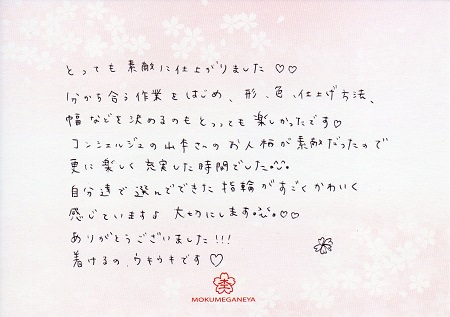 とっても素敵に仕上がりました♡♡
分かち合う作業をはじめ、形、色、仕上げ方法、
幅などを決めるのもとっっても楽しかったです♡
コンシェルジュの山本さんのお人柄が素敵だったので
更に楽しく充実した時間でした。
自分達で選んでできた指輪がすごくかわいく
感じていますよ 大切にします。♡♡
ありがとうございました!!!
着けるの、ウキウキです♡
MOKUMEGANEYA